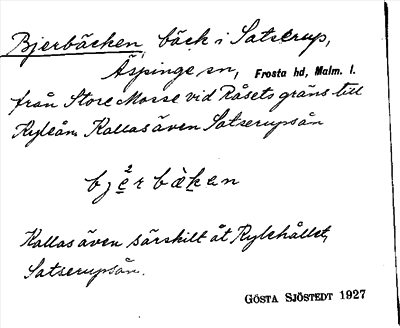 Bjerbäcken, bäck i Satserup,
Äspinge sn, Frosta hd, Malm. l.
från Store Mosse vid Råsets gräns till
Kyleån. Kallas även Satserupsån
bjerbäken
Kallas även särskilt åt Kylehållet,
Satserupsån.
GÖSTA SJÖSTEDT 1927